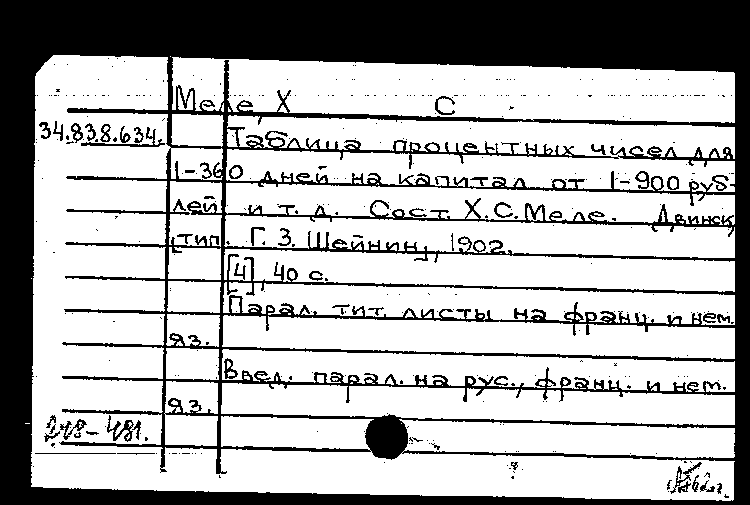 Меле, Х С
34.83.8.634. Таблица процентных чисел для
1-360 дней на капитал от 1-900 руб-
лей и т. д. Сост. Х.С. Меле. Двинск,
[тип. Г. З. Шейнин], 1902.
[4], 40 с.
Парал. тит. листы на франц. и нем.
яз.
Введ. парал. на рус., франц. и нем.
яз.
248-481.